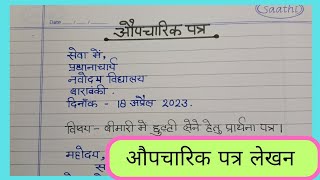 Saathi
औपचारिक पत्र
सेवा में,
प्रधानाचार्य
नवोदय विद्यालय
बाराबंकी.
दिनाँक - 18 अप्रैल 2023.
विषय - बीमारी में छुट्टी लेने हेतु प्रार्थना पत्र।
महोदय,
औपचारिक पत्र लेखन